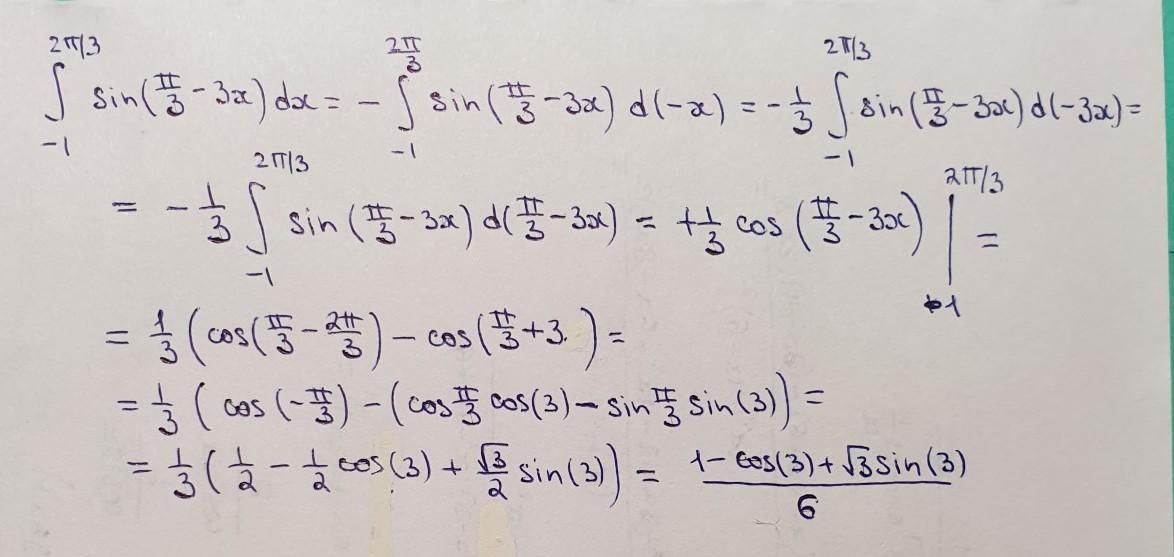 ∫_{-1}^{2π/3} sin(π/3 - 3x) dx = - ∫_{-1}^{2π/3} sin(π/3 - 3x) d(-x) = - 1/3 ∫_{-1}^{2π/3} sin(π/3 - 3x) d(-3x) =
= - 1/3 ∫_{-1}^{2π/3} sin(π/3 - 3x) d(π/3 - 3x) = + 1/3 cos(π/3 - 3x) |_{-1}^{2π/3} =
= 1/3 (cos(π/3 - 2π/3) - cos(π/3 + 3.) =
= 1/3 (cos(-π/3) - (cos π/3 cos(3) - sin π/3 sin(3)) =
= 1/3 (1/2 - 1/2 cos(3) + √3/2 sin(3)) = (1 - cos(3) + √3 sin(3))/6